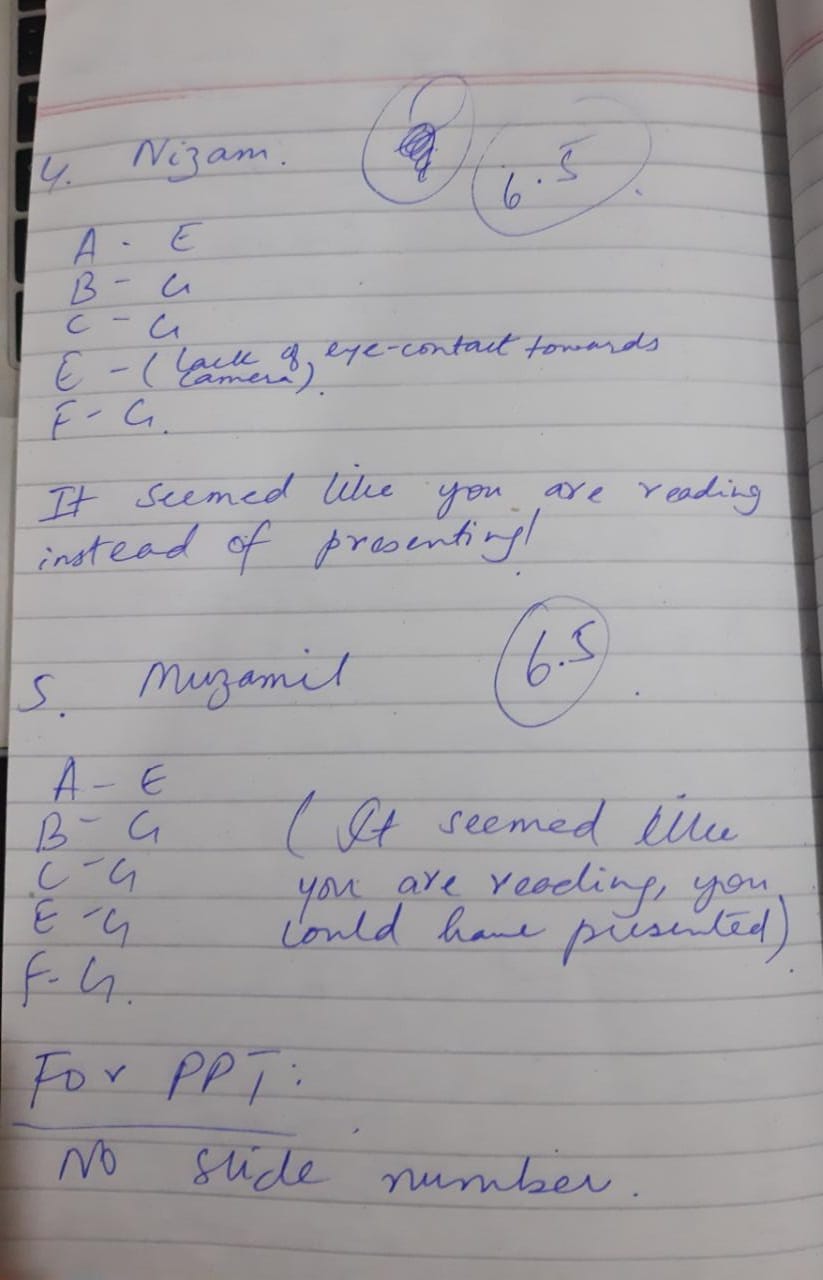 4. Nizam.
6.5
A - E
B - G
C - G
E - (lack of eye-contact towards
camera).
F - G.
It seemed like you are reading
instead of presenting!
5. Muzamil
6.5
A - E
B - G
C - G
E - G
F - G.
(It seemed like
you are reading, you
could have presented)
For PPT:
No slide number.